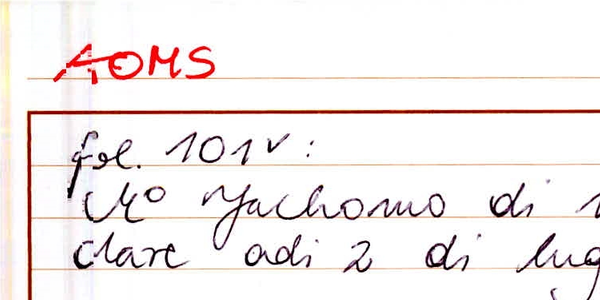 AOMS
fol. 101v:
Mo Jachomo di
dare adi 2 di